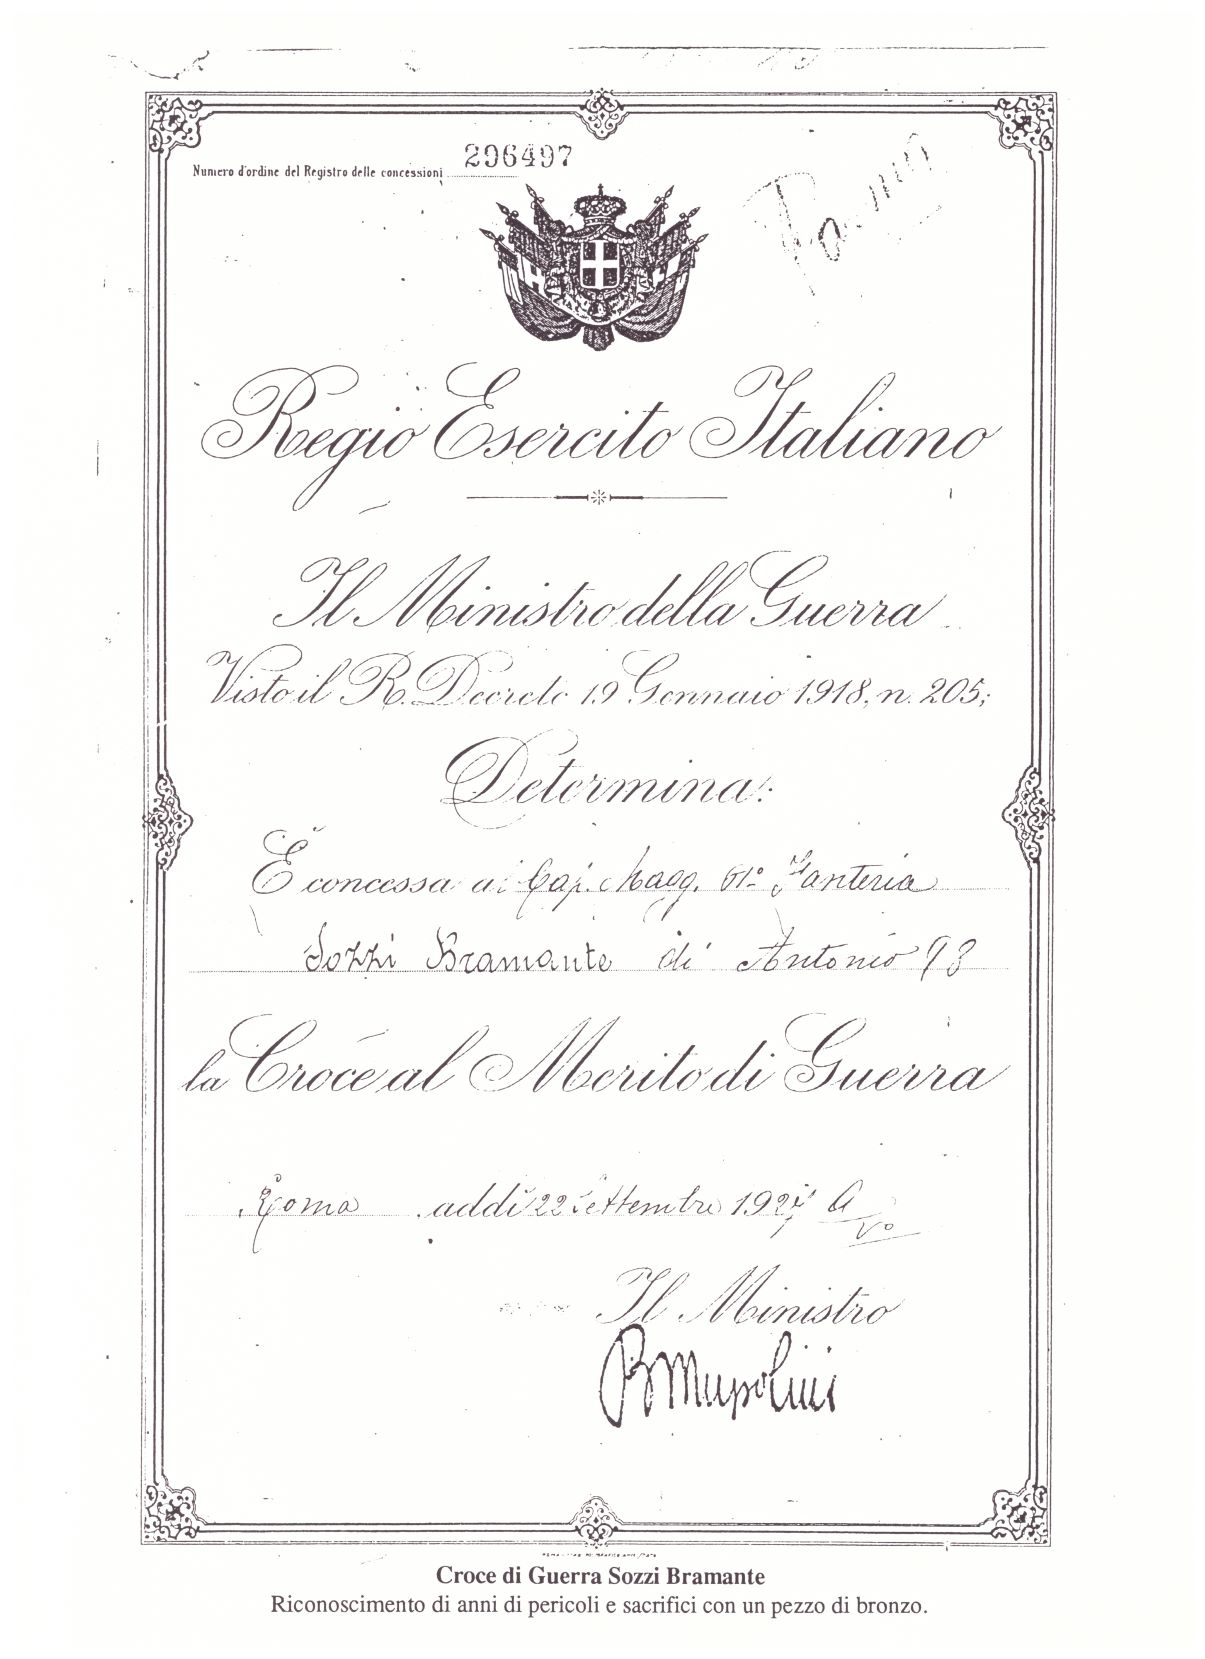 Numero d'ordine del Registro delle concessioni 296497
Regio Esercito Italiano
Il Ministro della Guerra
Visto il R. Decreto 19 Gennaio 1918, n. 205;
Determina:
È concessa al Cap. Magg. 61° Fanteria
Sozzi Bramante di Antonio 98
la Croce al Merito di Guerra
Roma addì 22 Settembre 1927 A
V°
Il Ministro
B Mussolini
Croce di Guerra Sozzi Bramante
Riconoscimento di anni di pericoli e sacrifici con un pezzo di bronzo.